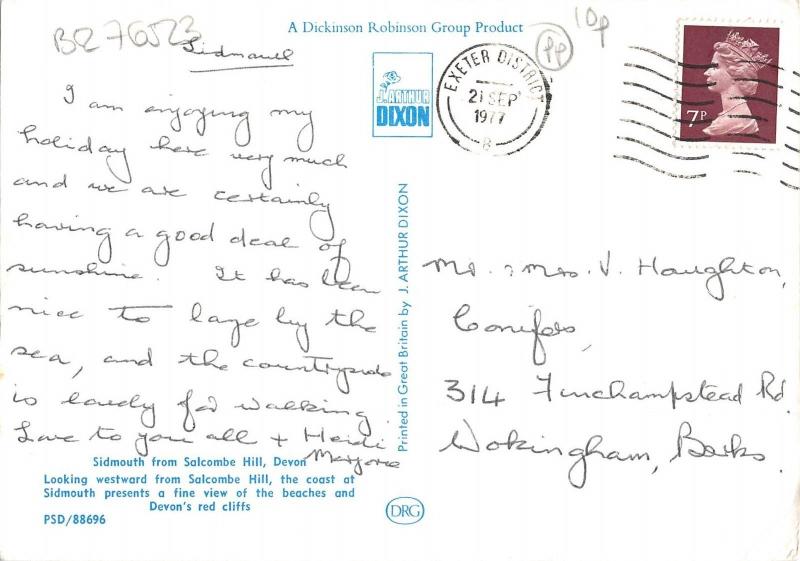 A Dickinson Robinson Group Product
10p
PP
BR276523
I am enjoying my
holiday here very much
and we are certainly
having a good deal of
sunshine. It has been
nice to laze by the
sea, and the countryside
is lovely for walking.
Love to you all + Heidi
Marjorie
Sidmouth from Salcombe Hill, Devon
Looking westward from Salcombe Hill, the coast at
Sidmouth presents a fine view of the beaches and
Devon's red cliffs
PSD/88696
J. ARTHUR
DIXON
Printed in Great Britain by J. ARTHUR DIXON
DRG
EXETER DISTRICT
21 SEP
1977
B
7P
Mr. & Mrs. V. Haughton,
Conifers,
314 Finchampstead Rd.
Wokingham, Berks.